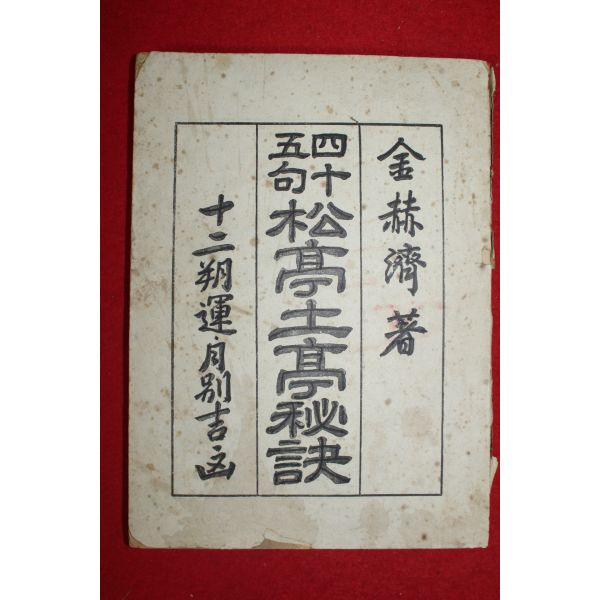 金赫濟 著
四十五句 松亭土亭秘訣
十二朔運月別吉凶